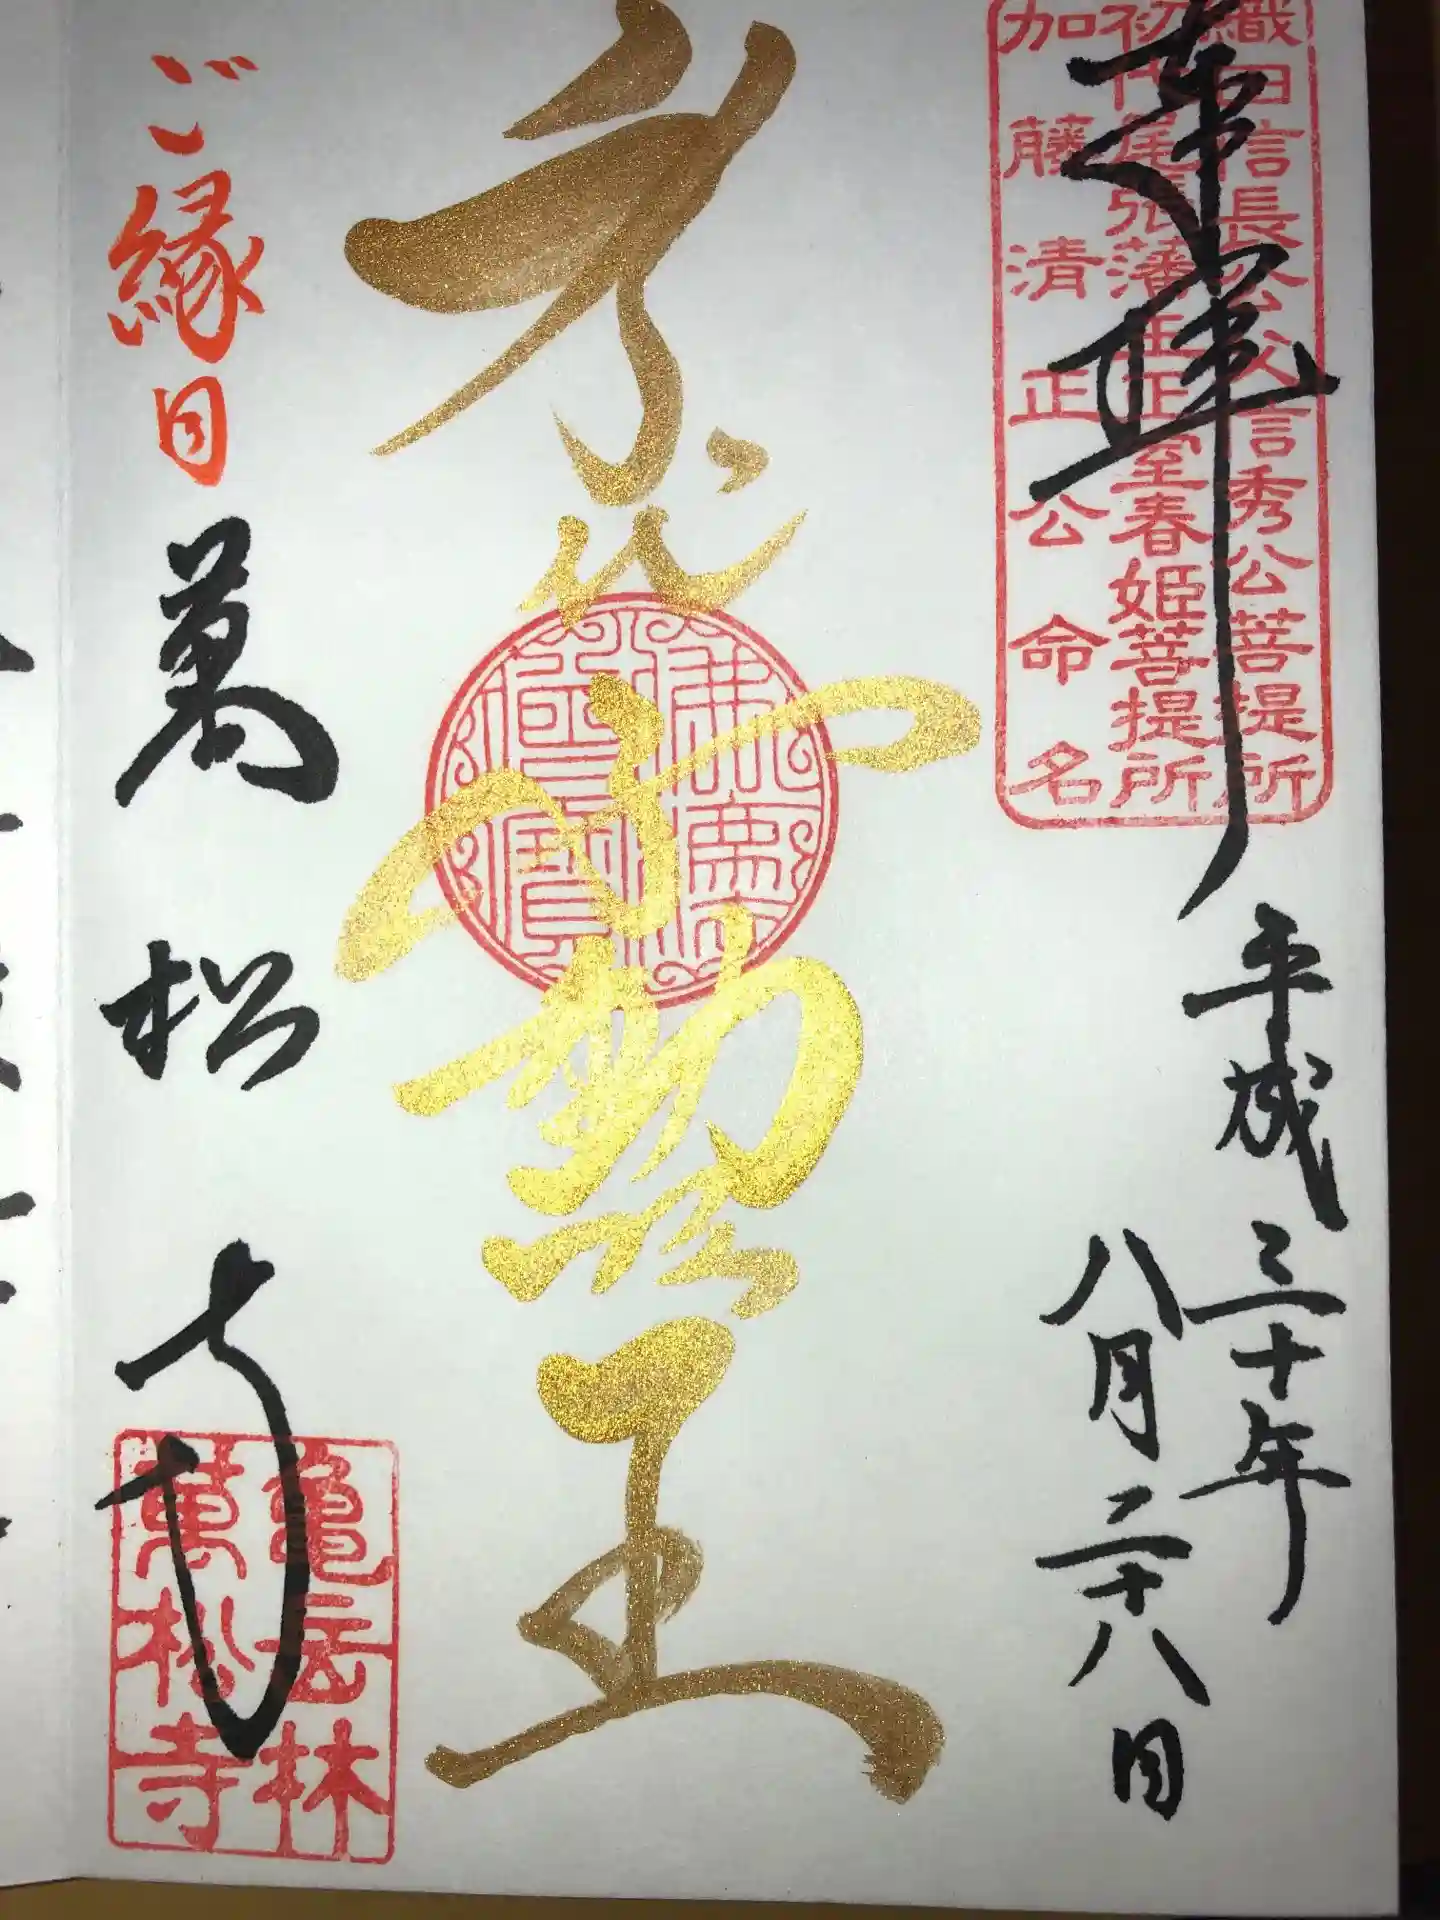 奉拝
織田信長公父信秀公菩提所
初代尾張藩主正室春姫菩提所
加藤清正公命名
平成三十年
八月二十八日
身代不動明王
佛法僧寶
ご縁日
萬松寺
亀岳林
萬松寺